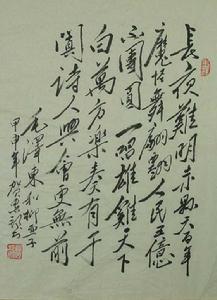 長夜難明赤县天百年
魔怪舞翩躚人民五億
不團圓一唱雄雞天下
白萬方樂奏有于
闐詩人興會更無前
毛澤東和柳亞子
甲申年